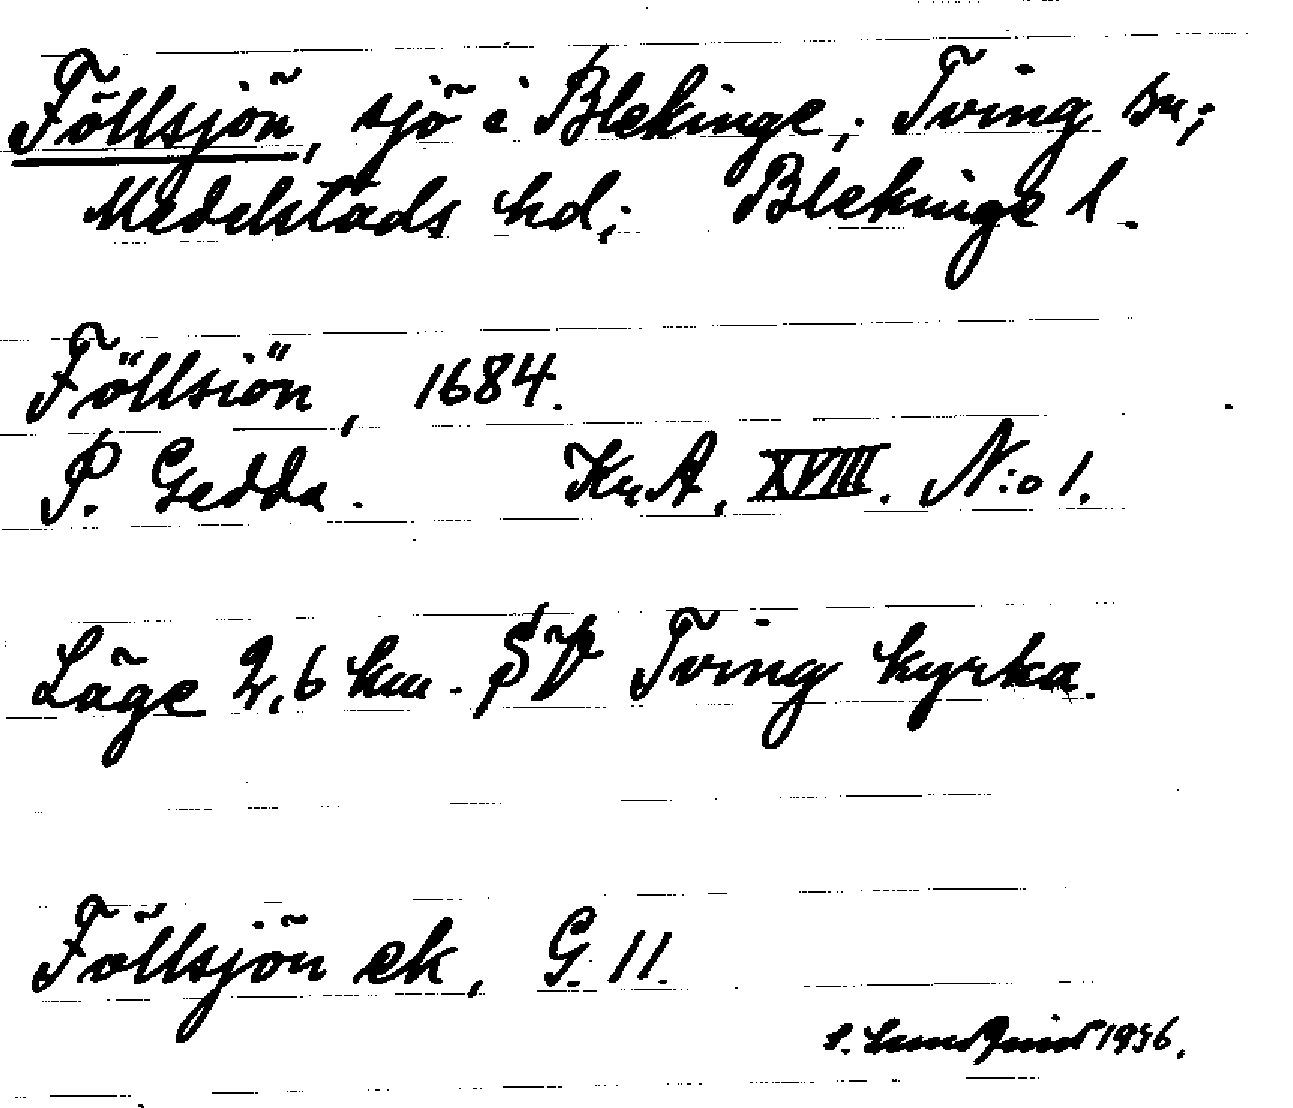 Föllsjön, sjö i Blekinge; Tving sn;
Medelstads hd; Blekinge l.
Föllsiön, 1684.
P. Gedda. KrA, XVIII. N:o 1.
Läge 2,6 km. SV Tving kyrka.
Föllsjön ek, G. 11.
S. Lundqvist 1936.